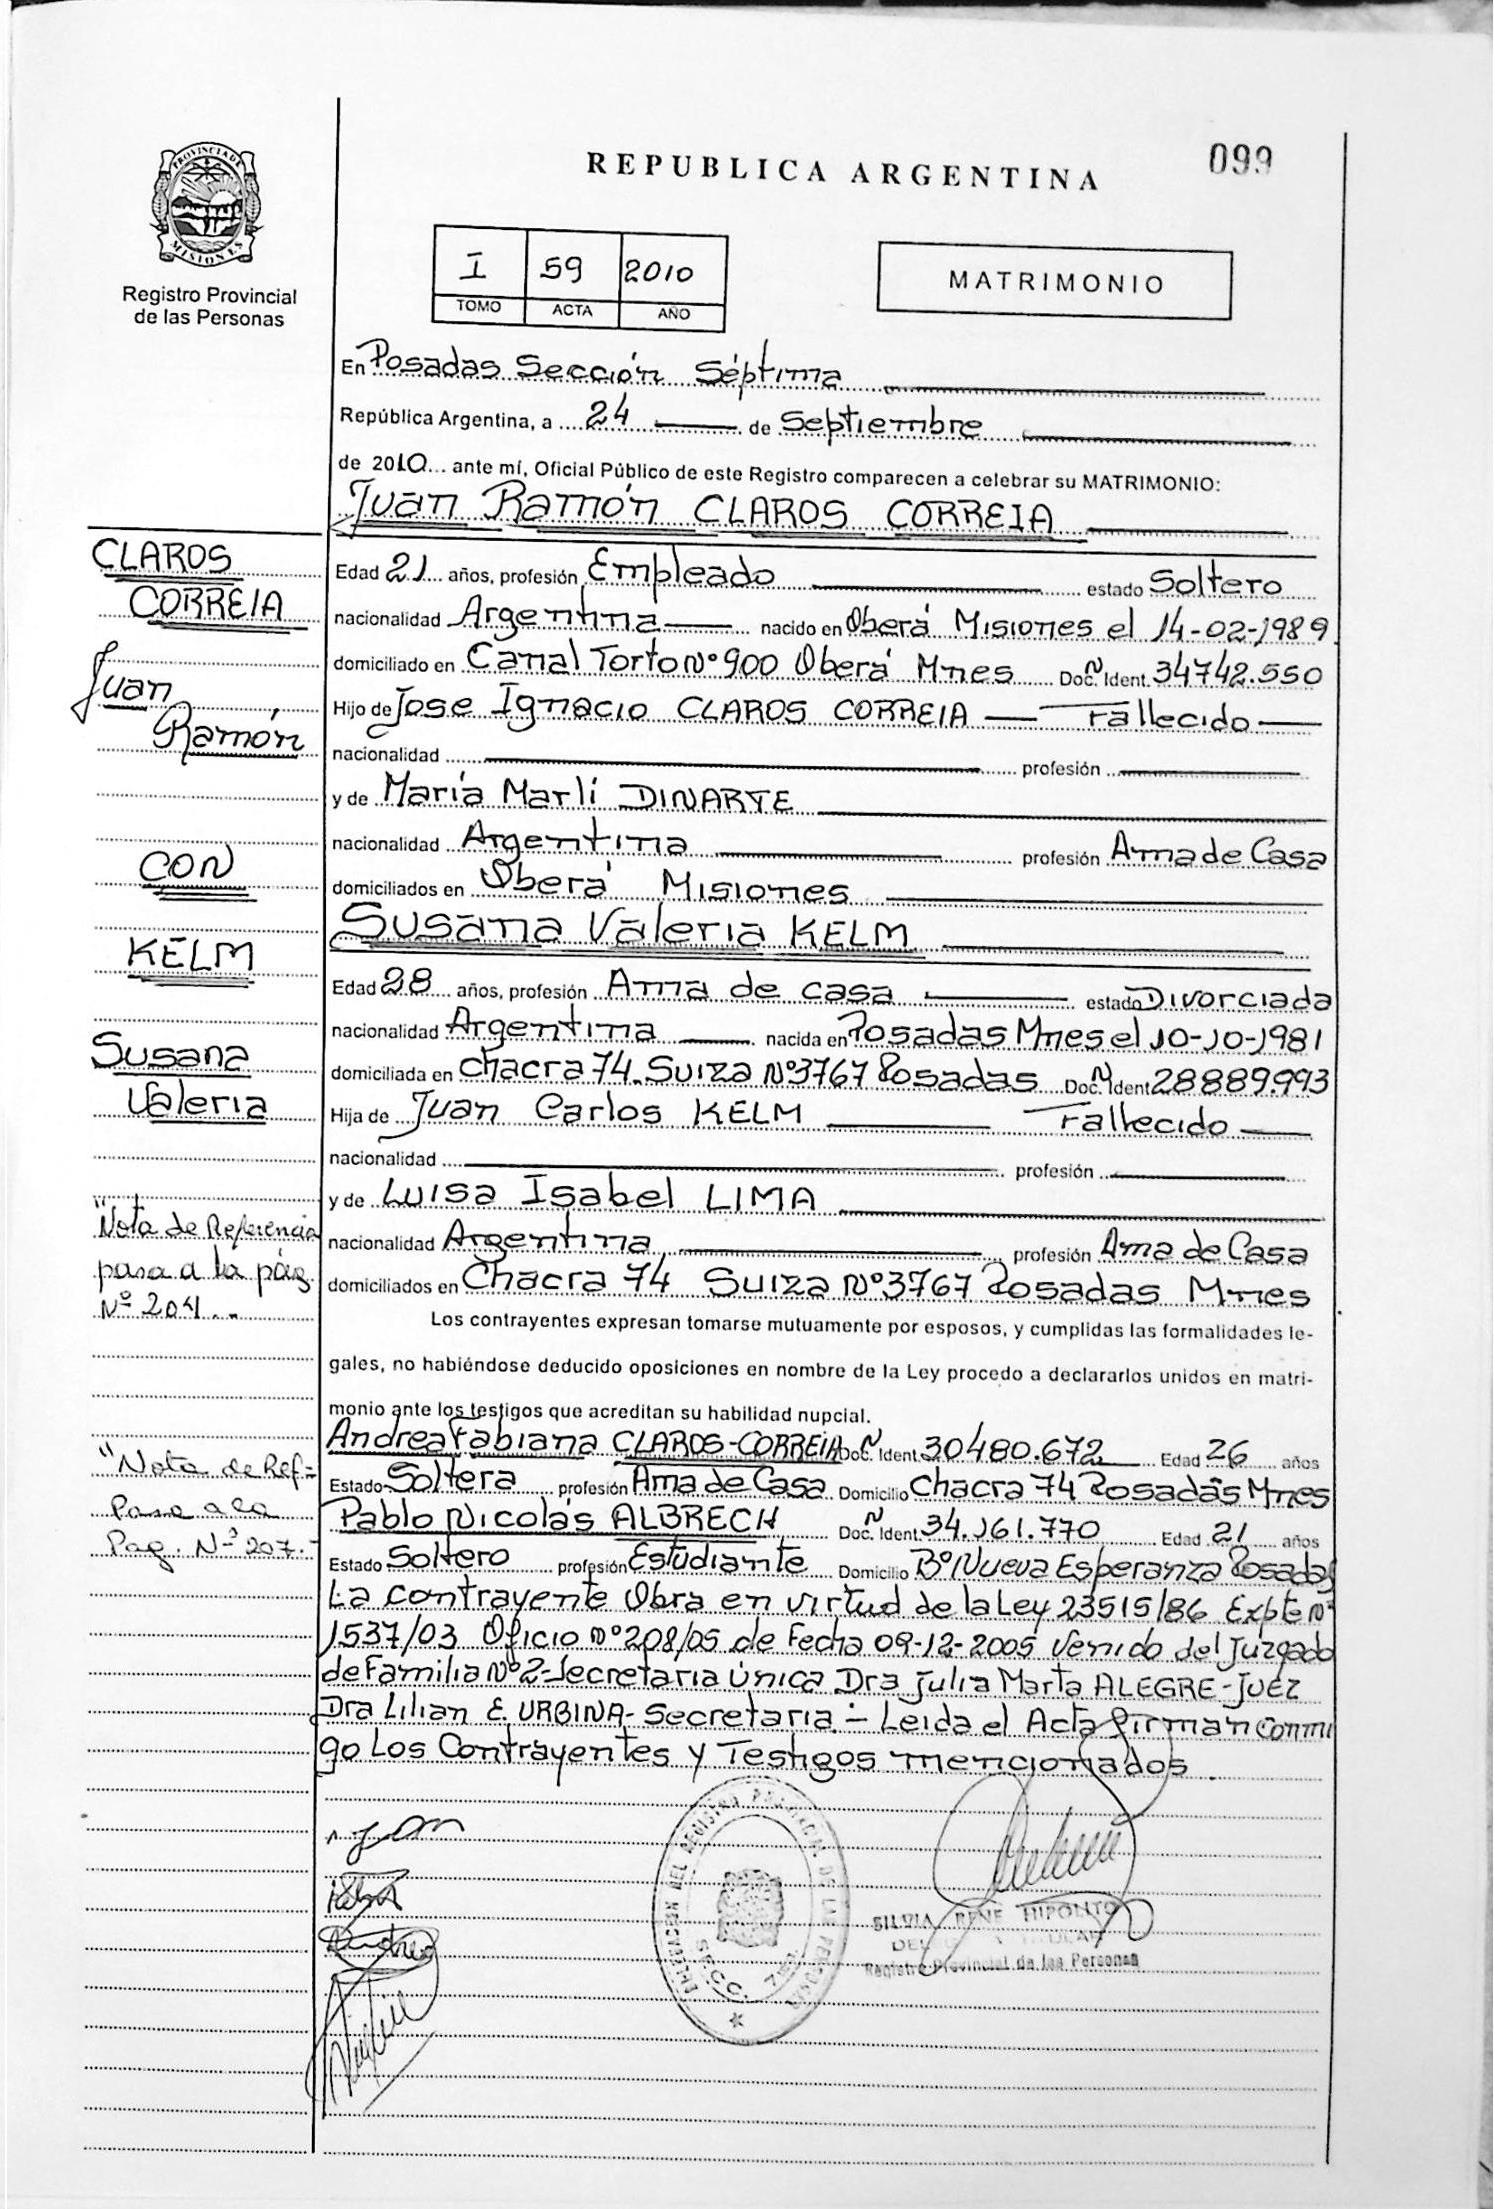 PROVINCIA DE
MISIONES
Registro Provincial
de las Personas
REPUBLICA ARGENTINA
099
I 59 2010
TOMO ACTA AÑO
MATRIMONIO
En Posadas Sección Séptima
República Argentina, a 24 de Septiembre
de 2010 ante mí, Oficial Público de este Registro comparecen a celebrar su MATRIMONIO:
Juan Ramón CLAROS CORREIA
Edad 21 años, profesión Empleado estado Soltero
nacionalidad Argentina nacido en Oberá Misiones el 14-02-1989
domiciliado en Canal Torto Nº 900 Oberá Mnes Doc. N Ident. 34742.550
Hijo de Jose Ignacio CLAROS CORREIA — Fallecido —
nacionalidad profesión
y de María Marlí DINARTE
nacionalidad Argentina profesión Ama de Casa
domiciliados en Oberá Misiones
Susana Valeria KELM
Edad 28 años, profesión Ama de casa estado Divorciada
nacionalidad Argentina nacida en Posadas Mnes el 10-10-1981
domiciliada en Chacra 74. Suiza Nº 3767 Posadas Doc. N Ident 28889.993
Hija de Juan Carlos KELM Fallecido
nacionalidad profesión
y de Luisa Isabel LIMA
nacionalidad Argentina profesión Ama de Casa
domiciliados en Chacra 74 Suiza Nº 3767 Posadas Mnes
Los contrayentes expresan tomarse mutuamente por esposos, y cumplidas las formalidades le-
gales, no habiéndose deducido oposiciones en nombre de la Ley procedo a declararlos unidos en matri-
monio ante los testigos que acreditan su habilidad nupcial.
Andrea Fabiana CLAROS-CORREIA Doc. N Ident. 30480.672 Edad 26 años
Estado Soltera profesión Ama de Casa Domicilio Chacra 74 Posadas Mnes
Pablo Nicolás ALBRECH Doc. N Ident. 34.161.770 Edad 21 años
Estado Soltero profesión Estudiante Domicilio Bº Nueva Esperanza Posadas
La contrayente Obra en virtud de la Ley 23515/86 Expte Nº
1537/03 Oficio Nº 208/05 de Fecha 09-12-2005 Venido del Juzgado
de Familia Nº 2-Secretaria Única Dra Julia Marta ALEGRE-JUEZ
Dra Lilian E. URBINA-Secretaria - Leida el Acta firman conmi
go Los Contrayentes y Testigos mencionados
CLAROS
CORREIA
Juan
Ramón
CON
KELM
Susana
Valeria
"Nota de Referencia
pasa a la pág.
Nº 204..
"Nota de Ref-
Pasa a la
Pag. Nº 207.-
Andrea
DELEGACION DEL REGISTRO PROVINCIAL DE LAS PERSONAS
SECC. 7ma
SILVIA RENE HIPOLITO
DELEGADA TITULAR
Registro Provincial de las Personas